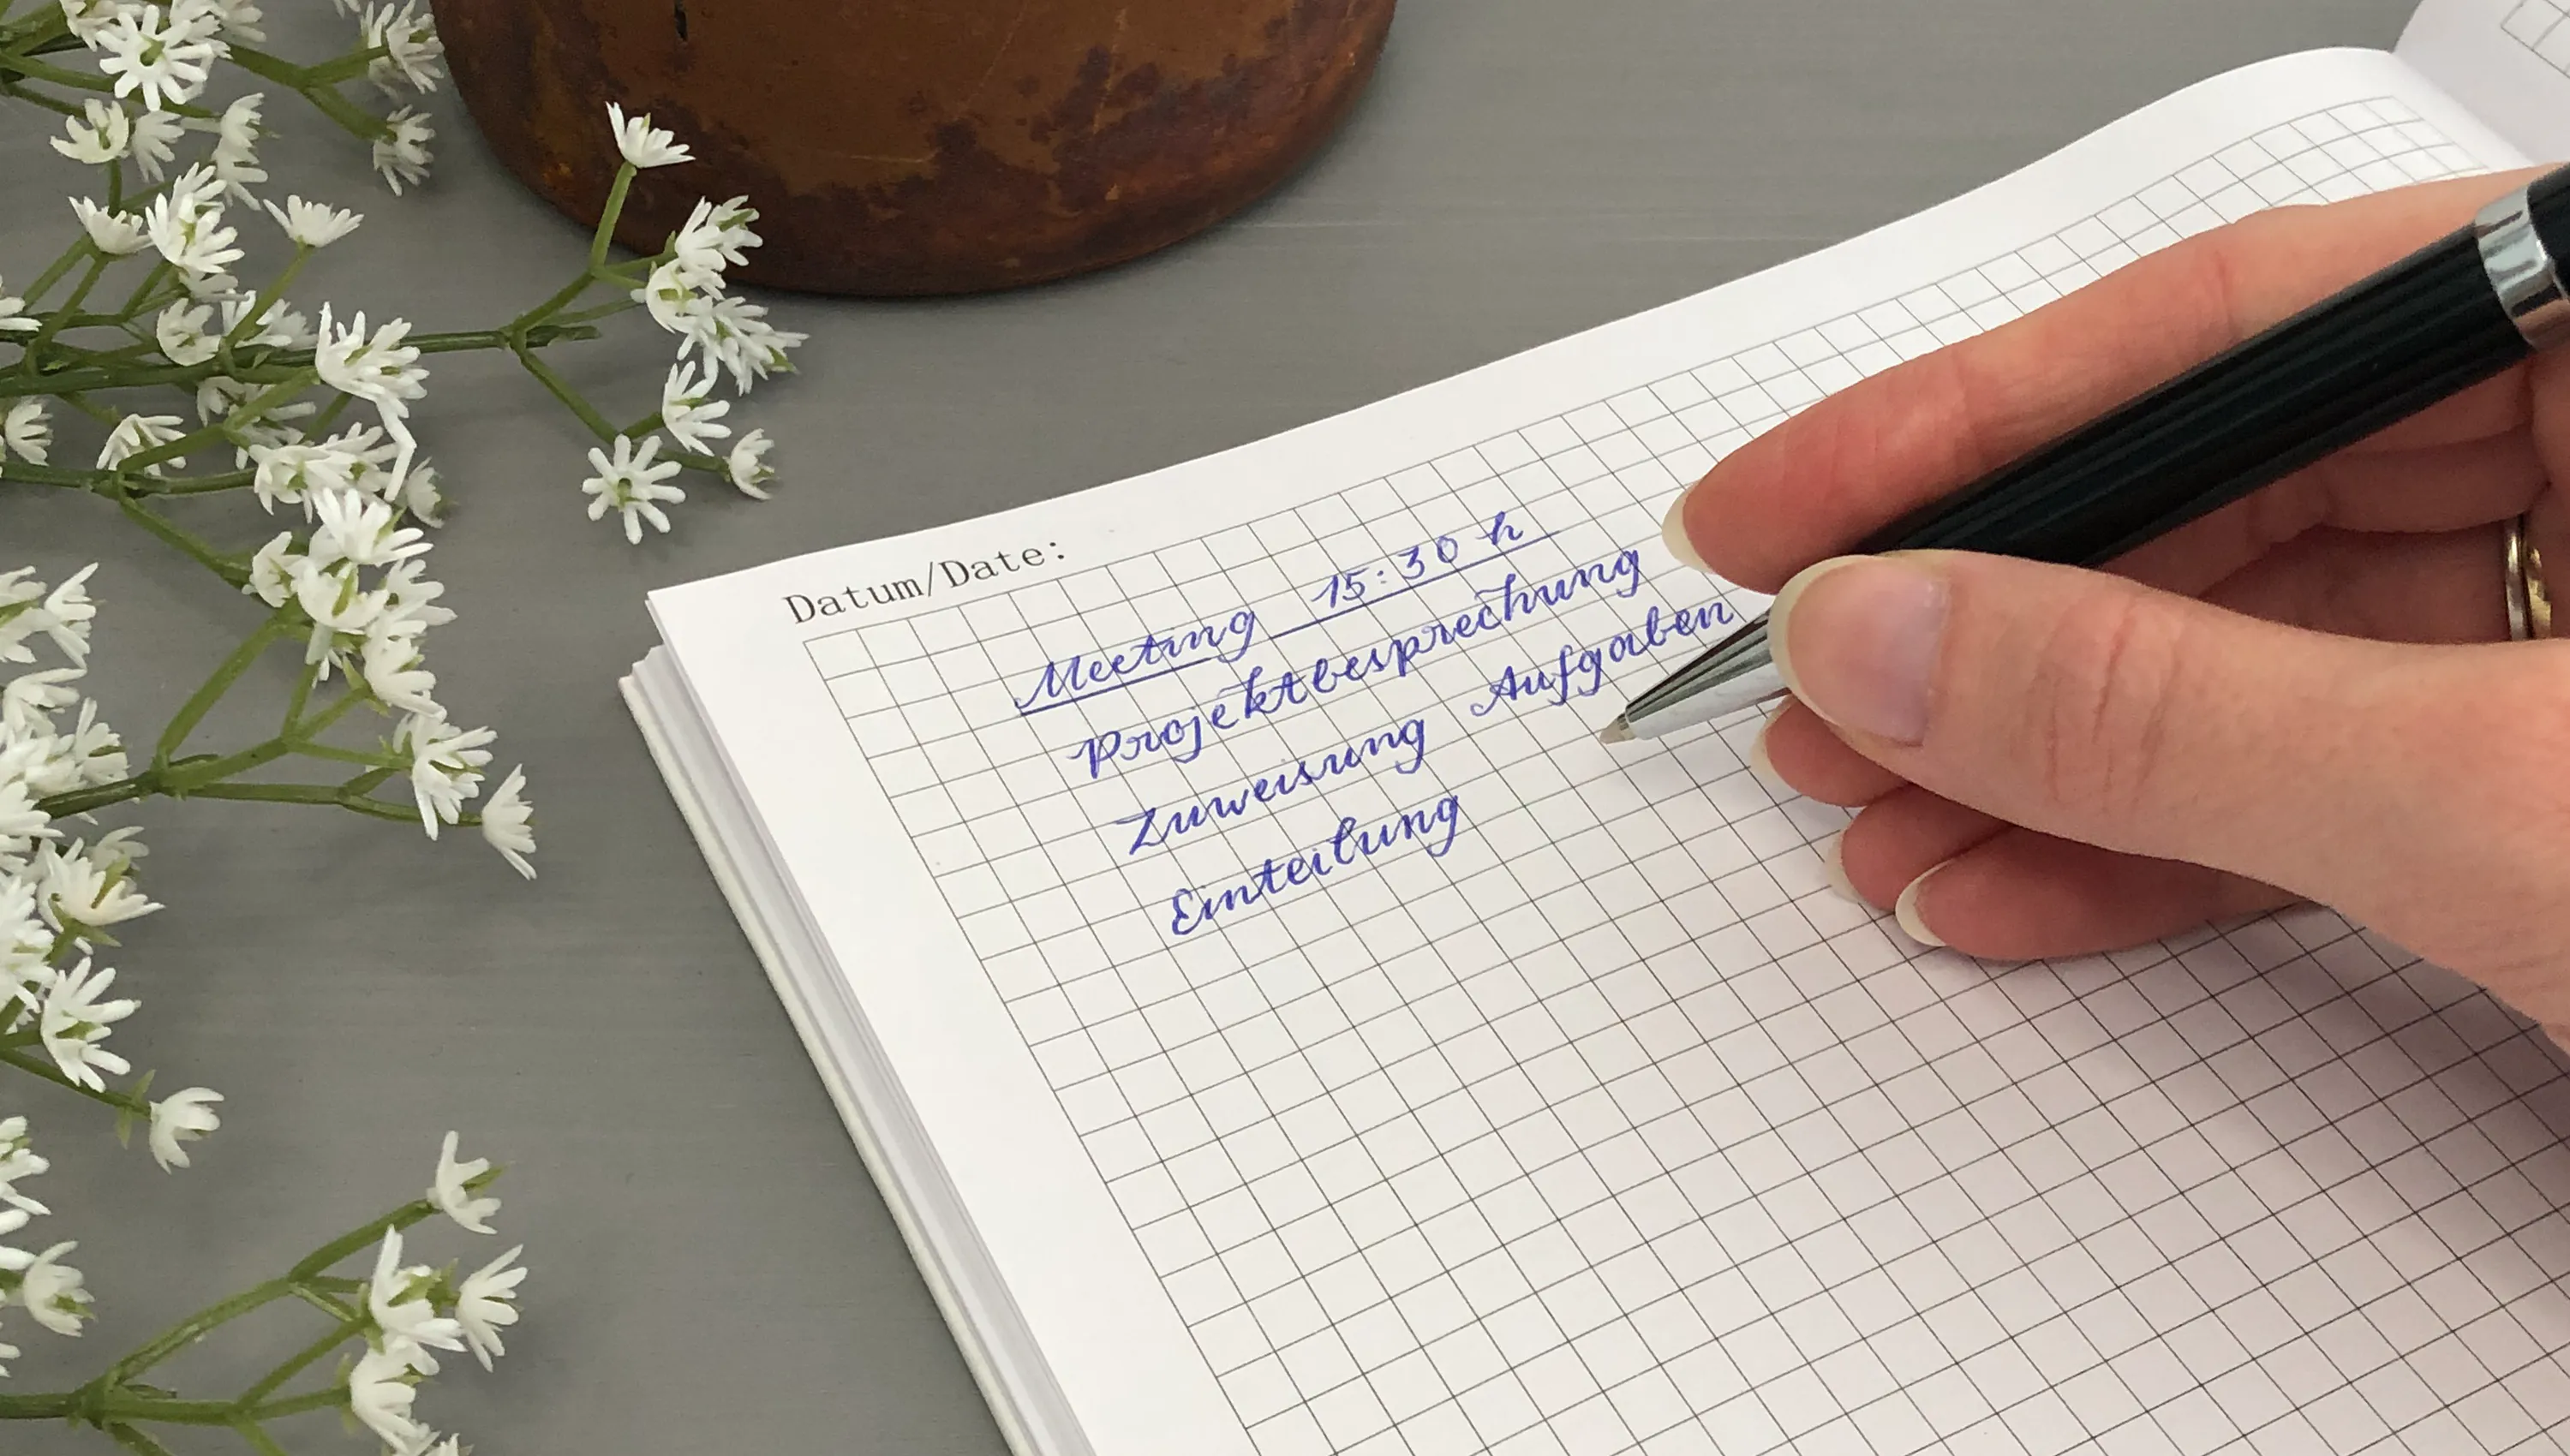 Datum/Date:
Meeting 15:30 h
Projektbesprechung
Zuweisung Aufgaben
Einteilung